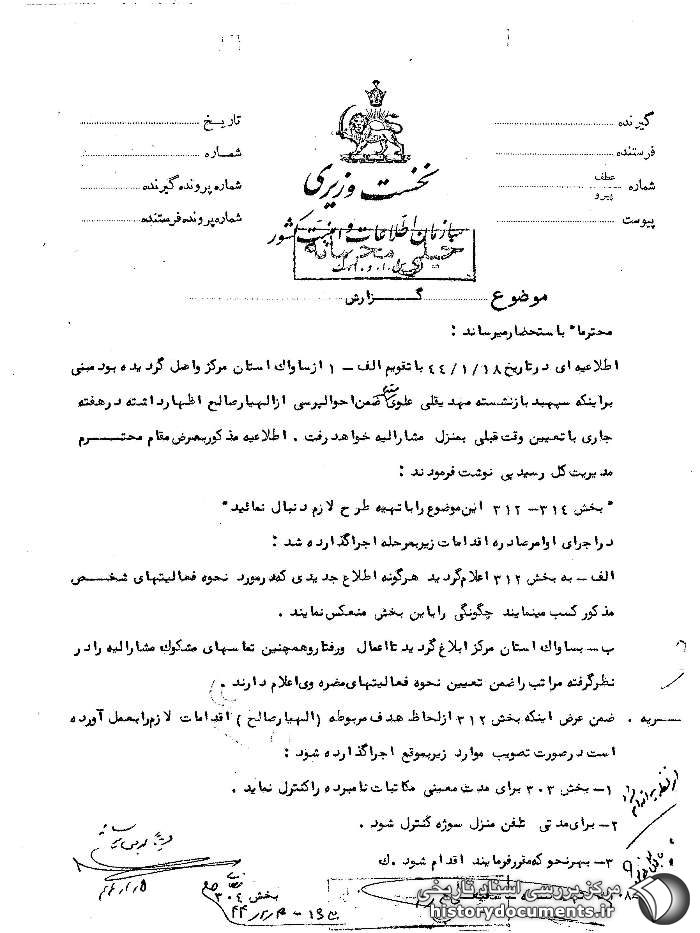 گیرنده
فرستنده
شماره عطف پیرو
پیوست
تاریخ
شماره
شماره پرونده گیرنده
شماره پرونده فرستنده
نخست وزیری
سازمان اطلاعات و امنیت کشور
خیلی محرمانه
موضوع
گزارش
محترماً باستحضار میرساند :
اطلاعیه ای در تاریخ ۴۴/۱/۱۸ با تقویم الف - ۱ از ساواک استان مرکز واصل گردیده بود مبنی
بر اینکه سپهبد بازنشسته مهدیقلی علوی مقدم ضمن احوالپرسی از الهیار صالح اظهار داشته در هفته
جاری با تعیین وقت قبلی بمنزل مشارالیه خواهد رفت . اطلاعیه مذکور بعرض مقام محتــرم
مدیریت کل رسید پی نوشت فرمودند :
" بخش ۳۱۴ - ۳۱۲ این موضوع را با تهیه طرح لازم دنبال نمائید "
در اجرای اوامر صادره اقدامات زیر بمرحله اجرا گذارده شد :
الف - به بخش ۳۱۲ اعلام گردید هرگونه اطلاع جدیدی که در مورد نحوه فعالیتهای شخــص
مذکور کسب مینمایند چگونگی را باین بخش منعکس نمایند .
ب - بساواک استان مرکز ابلاغ گردید تا اعمال و رفتار و همچنین تماسهای مشکوک مشارالیه را در
نظر گرفته مراتب را ضمن تعیین نحوه فعالیتهای مضره وی اعلام دارند .
نظریه . ضمن عرض اینکه بخش ۳۱۲ از لحاظ هدف مربوطه ( الهیار صالح ) اقدامات لازم را بعمل آورده
است در صورت تصویب موارد زیر بموقع اجرا گذارده شود :
۱- بخش ۳۰۳ برای مدت معینی مکاتبات نامبرده را کنترل نماید .
۲- برای مدتی تلفن منزل سوژه کنترل شود .
۳- بهر نحو که مقرر فرمایند اقدام شود . ک
بخش ۳۰۴
مرکز بررسی اسناد تاریخی
historydocuments.ir